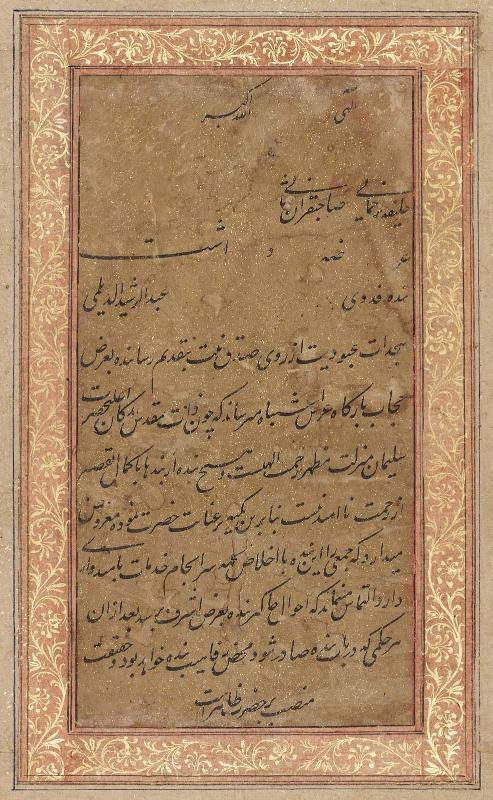 الهی الله اکبر
خلیفه رحمانی صاحبقران ثانی
عرضه داشت
بنده فدوی عبدالرشید الدیلمی
سجدات عبودیت از روی صدق نیت بتقدیم رسانیده بعرض
حجاب بارگاه عرش اشتباه میرساند که چون ذات مقدس اعلیحضرت
سلیمان منزلت مظهر رحمت الهیست و هیچ بنده از بندها با کمال تقصیر
از رحمت ناامید نیست بنابرین تکیه بر عنایات حضرت نموده معروض
میدارد که جمعی را این بنده با اخلاص سرانجام خدمات
دارد التماس مینماید که احوال بنده بعرض اشرف برسد بعد از آن
هر حکمی که در باب بنده صادر شود محض بنده خواهد بود و حقیقت
منصب بر حضرت ظاهر است